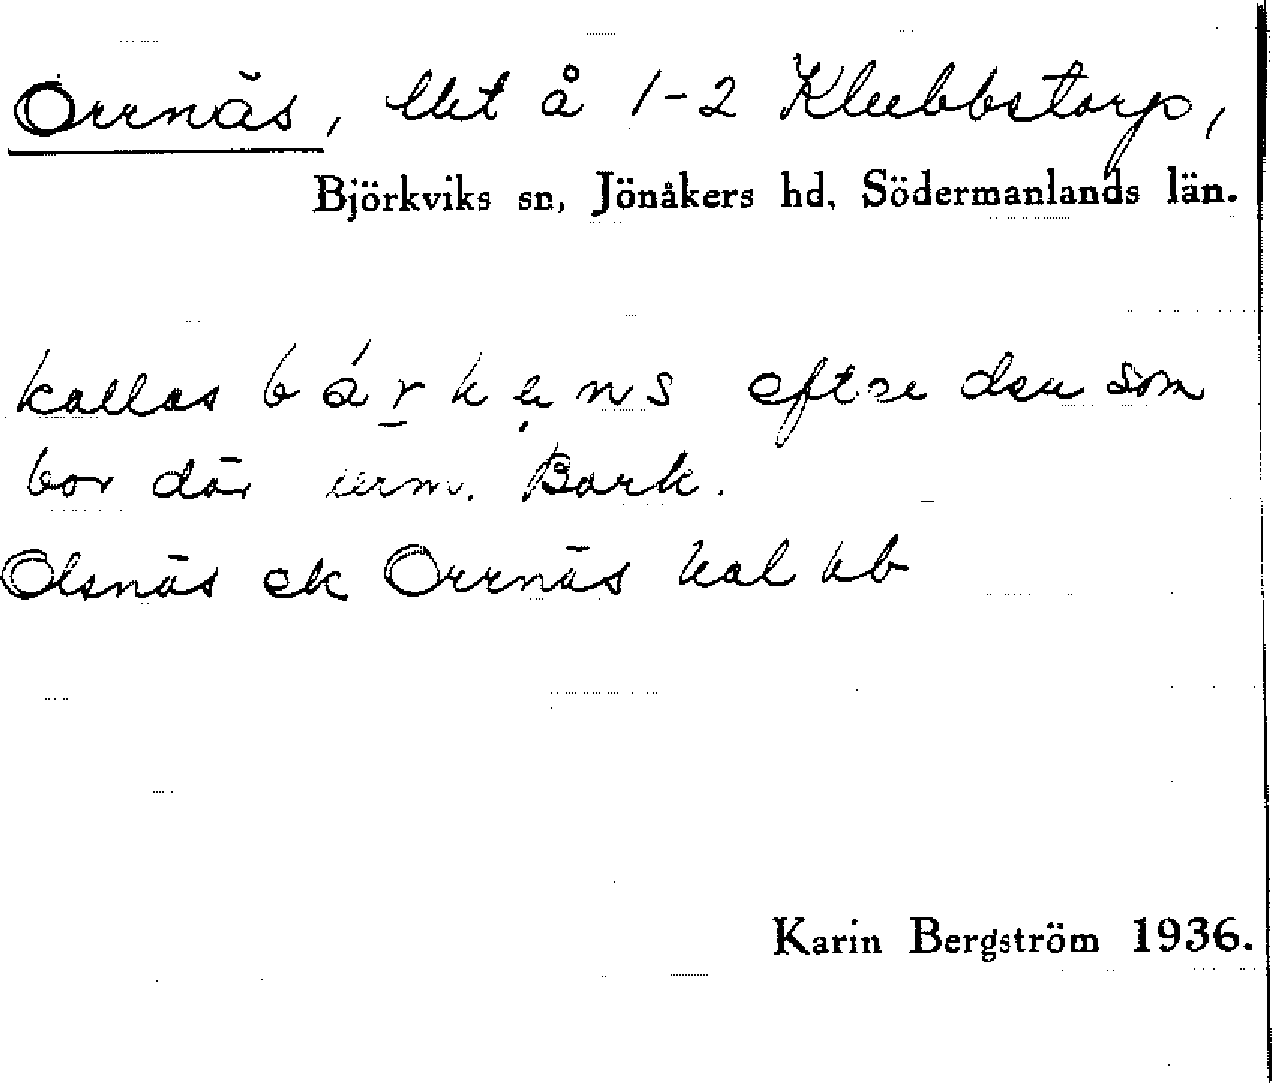 Orrnäs, lht å 1-2 Klubbetorp,
Björkviks sn, Jönåkers hd, Södermanlands län.
kallas bárkens efter den som
bor där Bark.
Olsnäs ek Orrnäs
Karin Bergström 1936.